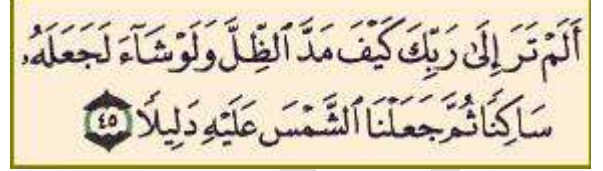 أَلَمْ تَرَ إِلَىٰ رَبِّكَ كَيْفَ مَدَّ ٱلظِّلَّ وَلَوْ شَآءَ لَجَعَلَهُۥ
سَاكِنًا ثُمَّ جَعَلْنَا ٱلشَّمْسَ عَلَيْهِ دَلِيلًا ٤٥